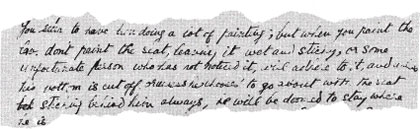 You seem to have been doing a lot of painting; but when you paint the
dont paint the seat, leaving it wet and sticky, or some
unfortunate person who has not noticed it, will adhere to it, and
his bottom is cut off to go about with the seat
sticking behind him always, he will be doomed to stay where
he is